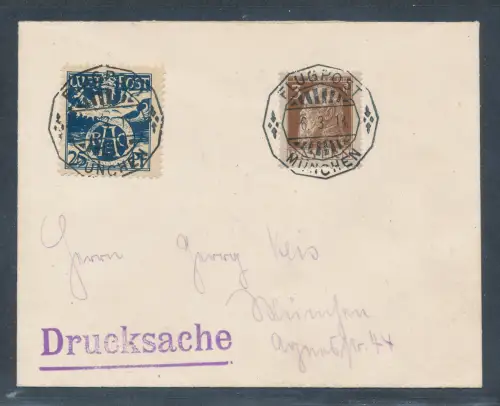 LUFTPOST
BAC
FLUGPOST
MÜNCHEN
3
FLUGPOST
MÜNCHEN
Herrn Georg
München
Drucksache
Agnesstr. 44